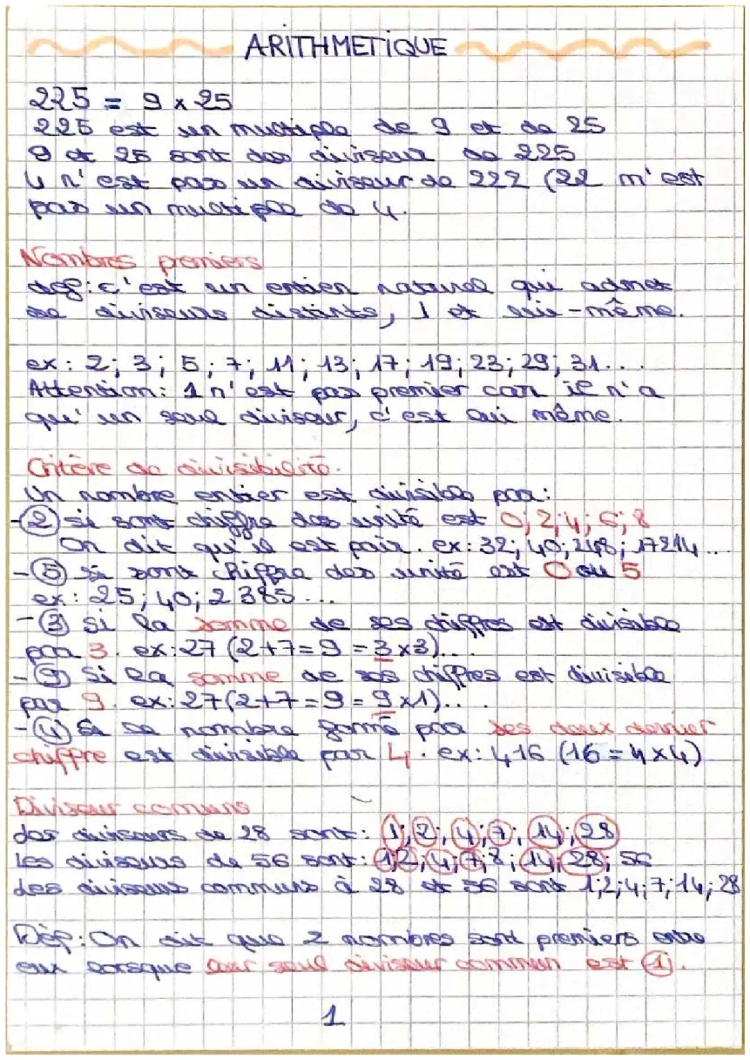 ARITHMETIQUE
225 = 9 x 25
225 est un multiple de 9 et de 25
9 et 25 sont des diviseur de 225
4 n'est pas un diviseur de 222 (22 n'est
pas un multiple de 4.
Nombres premiers
def: c'est un entier naturel qui admet
2 diviseurs distincts, 1 et lui-même.
ex: 2; 3; 5; 7; 11; 13; 17; 19; 23; 29; 31...
Attention: 1 n'est pas premier car il n'a
qu'un seul diviseur, c'est lui même.
Critère de divisibilité.
Un nombre entier est divisible par:
-2 si sont chiffre des unité est 0; 2; 4; 6; 8
On dit qu'il est pair. ex: 32; 40; 248; 17214...
-5 si sont chiffre des unité est 0 ou 5
ex: 25; 40; 2385...
-3 si la somme de ses chiffres est divisible
par 3. ex: 27 (2+7=9=3x3)...
-9 Si la somme de ses chiffres est divisible
par 9. ex: 27 (2+7=9=9x1)...
-4 si le nombre formé par les deux dernier
chiffre est divisible par 4. ex: 416 (16=4x4)
Diviseur comuns
Les diviseurs de 28 sont: 1; 2; 4; 7; 14; 28
Les diviseurs de 56 sont: 1; 2; 4; 7; 8; 14; 28; 56
Les diviseurs communs à 28 et 56 sont 1; 2; 4; 7; 14; 28
Déf: On dit que 2 nombres sont premiers entre
eux lorsque leur seul diviseur commun est 1.
1